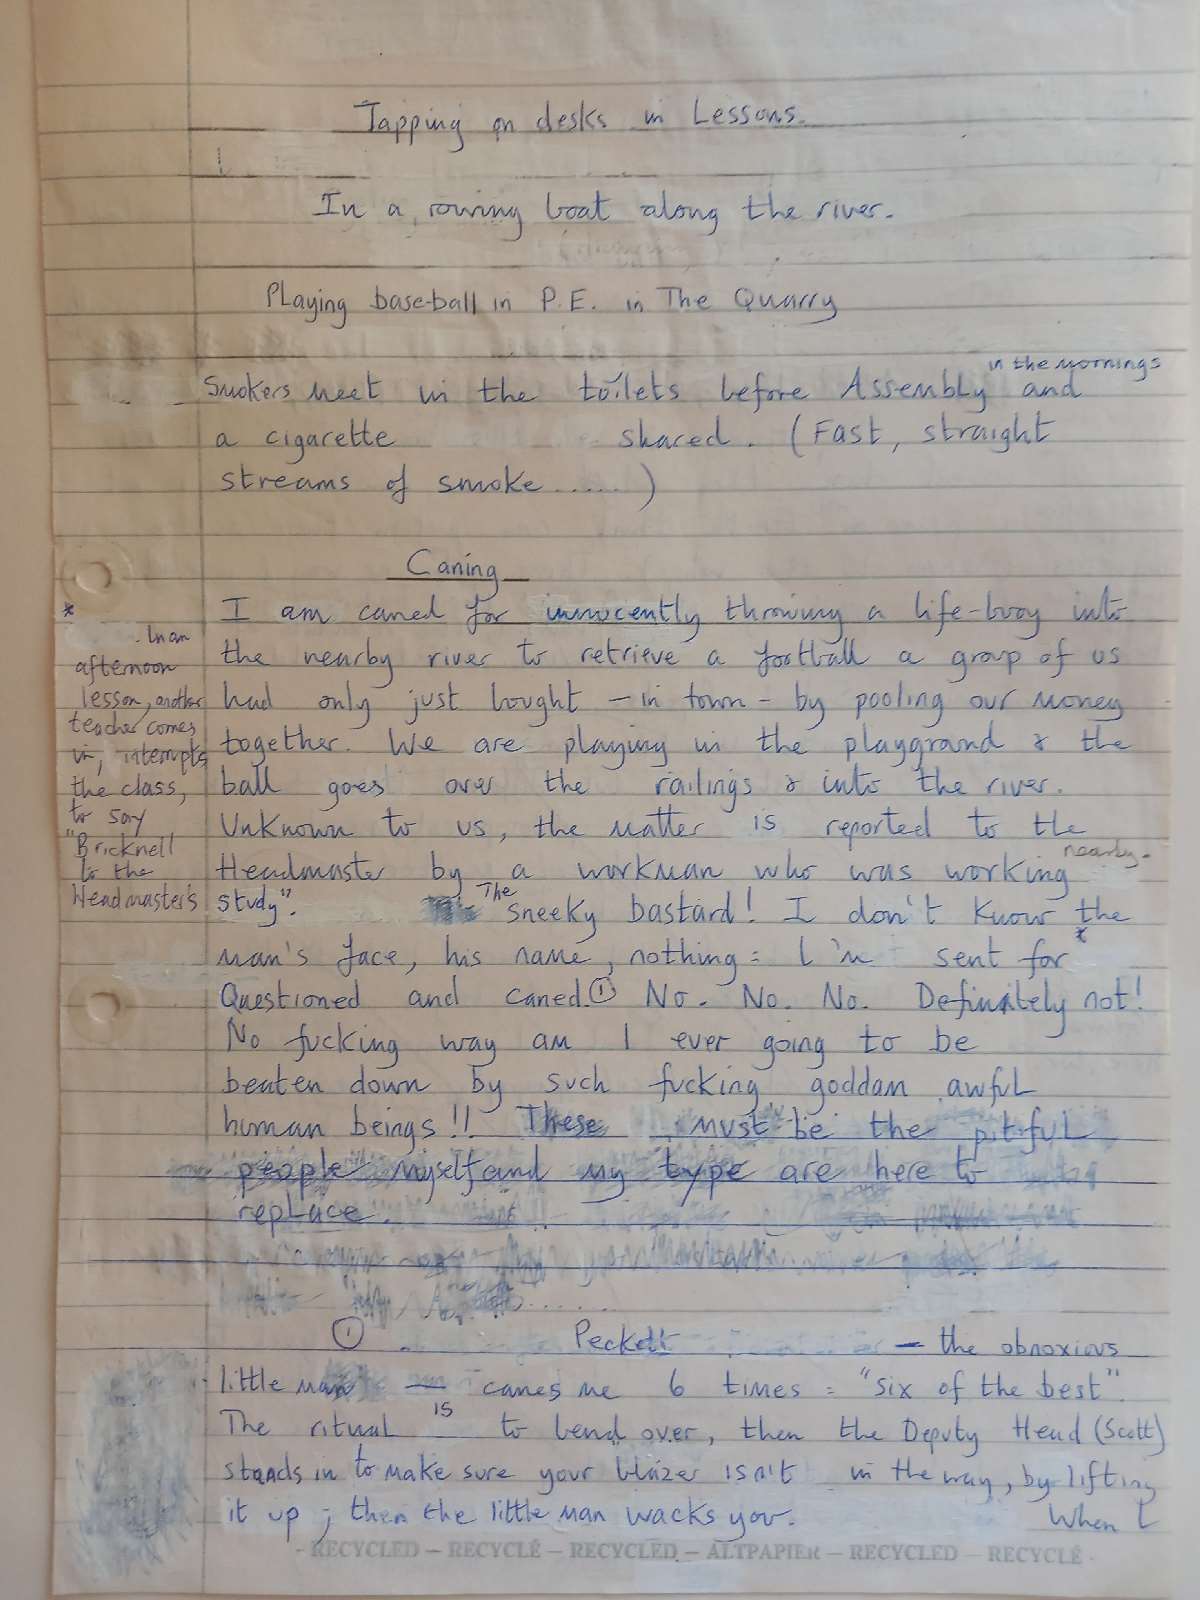 Tapping on desks in Lessons.
In a rowing boat along the river.
Playing base-ball in P.E. in The Quarry
in the mornings
Smokers meet in the toilets before Assembly and
a cigarette shared. (Fast, straight
streams of smoke ......)
Caning
I am caned for innocently throwing a life-buoy into
the nearby river to retrieve a football a group of us
had only just bought - in town - by pooling our money
together. We are playing in the playground & the
ball goes over the railings & into the river.
Unknown to us, the matter is reported to the
Headmaster by a workman who was working nearby.
The sneeky bastard! I don't know the
man's face, his name, nothing: I'm sent for *
Questioned and caned. ① No. No. No. Definitely not!
No fucking way am I ever going to be
beaten down by such fucking goddam awful
human beings!! These must be the pitiful
people myself and my type are here to
replace.
*
In an
afternoon
lesson, another
teacher comes
in, interupts
the class,
to say
"Bricknell
to the
Headmaster's study".
① Peckett — the obnoxious
little man canes me 6 times = "six of the best".
The ritual is to bend over, then the Deputy Head (Scott)
stands in to make sure your blazer isn't in the way, by lifting
it up; then the little man wacks you. When I
- RECYCLED – RECYCLÉ – RECYCLED – ALTPAPIER – RECYCLED – RECYCLÉ -